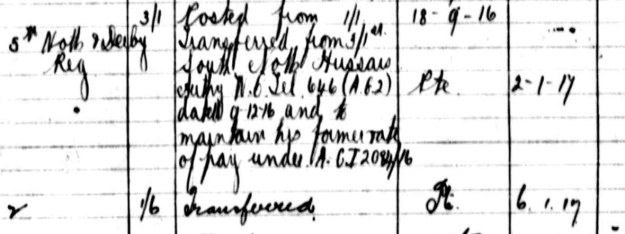 3/1 Posted from 1/1 18-9-16
5th Notts & Derby Transferred from 3/1st
Reg South Notts Hussars
authy W.O. Tel. 646 (A.G.2) Pte 2-1-17
dated 9-12-16 and to
maintain his former rate
of pay under A.C.I 2084/16
1/6 Transferred 6.1.17